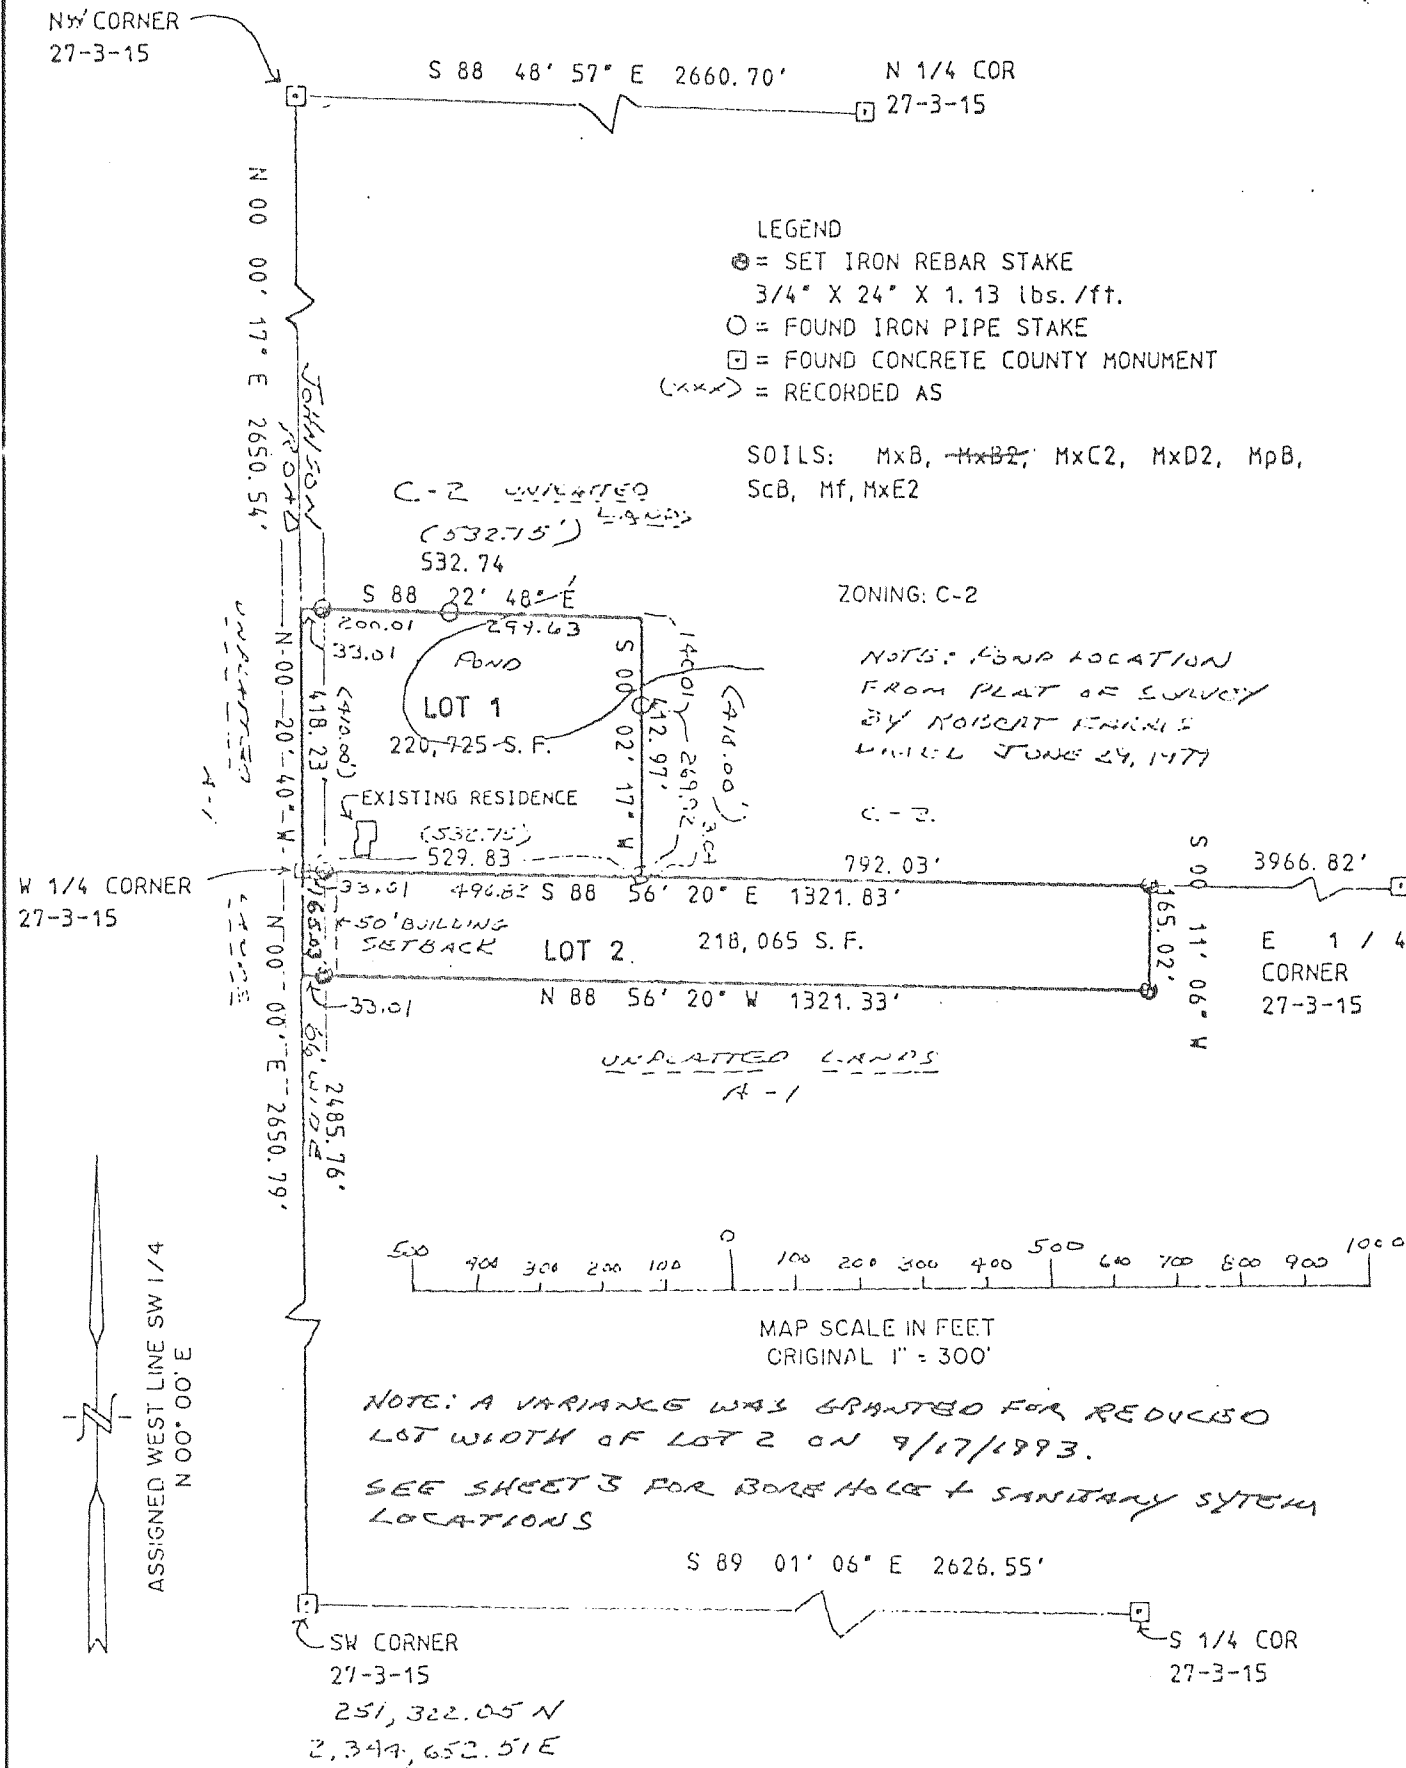 NW CORNER
27-3-15
S 88 48' 57" E 2660.70'
N 1/4 COR
27-3-15
N 00 00' 17" E 2650.54'
JOHNSON
ROAD
LEGEND
= SET IRON REBAR STAKE
3/4" X 24" X 1.13 lbs./ft.
= FOUND IRON PIPE STAKE
= FOUND CONCRETE COUNTY MONUMENT
(xxx) = RECORDED AS
SOILS: MxB, MxB2, MxC2, MxD2, MpB,
ScB, Mf, MxE2
C-2 UNPLATTED
LANDS
(532.75')
532.74
S 88 22' 48" E
200.01
294.63
33.01
POND
LOT 1
220,725 S.F.
ZONING: C-2
NOTE: POND LOCATION
FROM PLAT OF SURVEY
BY ROBERT
JUNE 29, 1979
C-2.
UNPLATTED
LANDS
A-1
N 00 20' 40" W
418.23
S 00 02' 17" W
412.97'
140.01
269.92
3.04
(414.00')
EXISTING RESIDENCE
(532.75)
529.83
792.03'
3966.82'
W 1/4 CORNER
27-3-15
33.01
496.82
S 88 56' 20" E 1321.83'
165.03
50' BUILDING
SETBACK
LOT 2.
218,065 S.F.
165.02'
S 00 11' 06" W
E 1/4
CORNER
27-3-15
33.01
N 88 56' 20" W 1321.33'
UNPLATTED LANDS
A-1
N 00 00' E 2650.79'
66' WIDE
2485.76'
ASSIGNED WEST LINE SW 1/4
N 00° 00' E
500 400 300 200 100 0 100 200 300 400 500 600 700 800 900 1000
MAP SCALE IN FEET
ORIGINAL 1" = 300'
NOTE: A VARIANCE WAS GRANTED FOR REDUCED
LOT WIDTH OF LOT 2 ON 9/17/1993.
SEE SHEET 3 FOR BORE HOLE + SANITARY SYTEM
LOCATIONS
S 89 01' 06" E 2626.55'
SW CORNER
27-3-15
251,322.05 N
2,344,652.51 E
S 1/4 COR
27-3-15